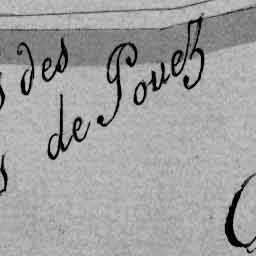 des
de Pouez